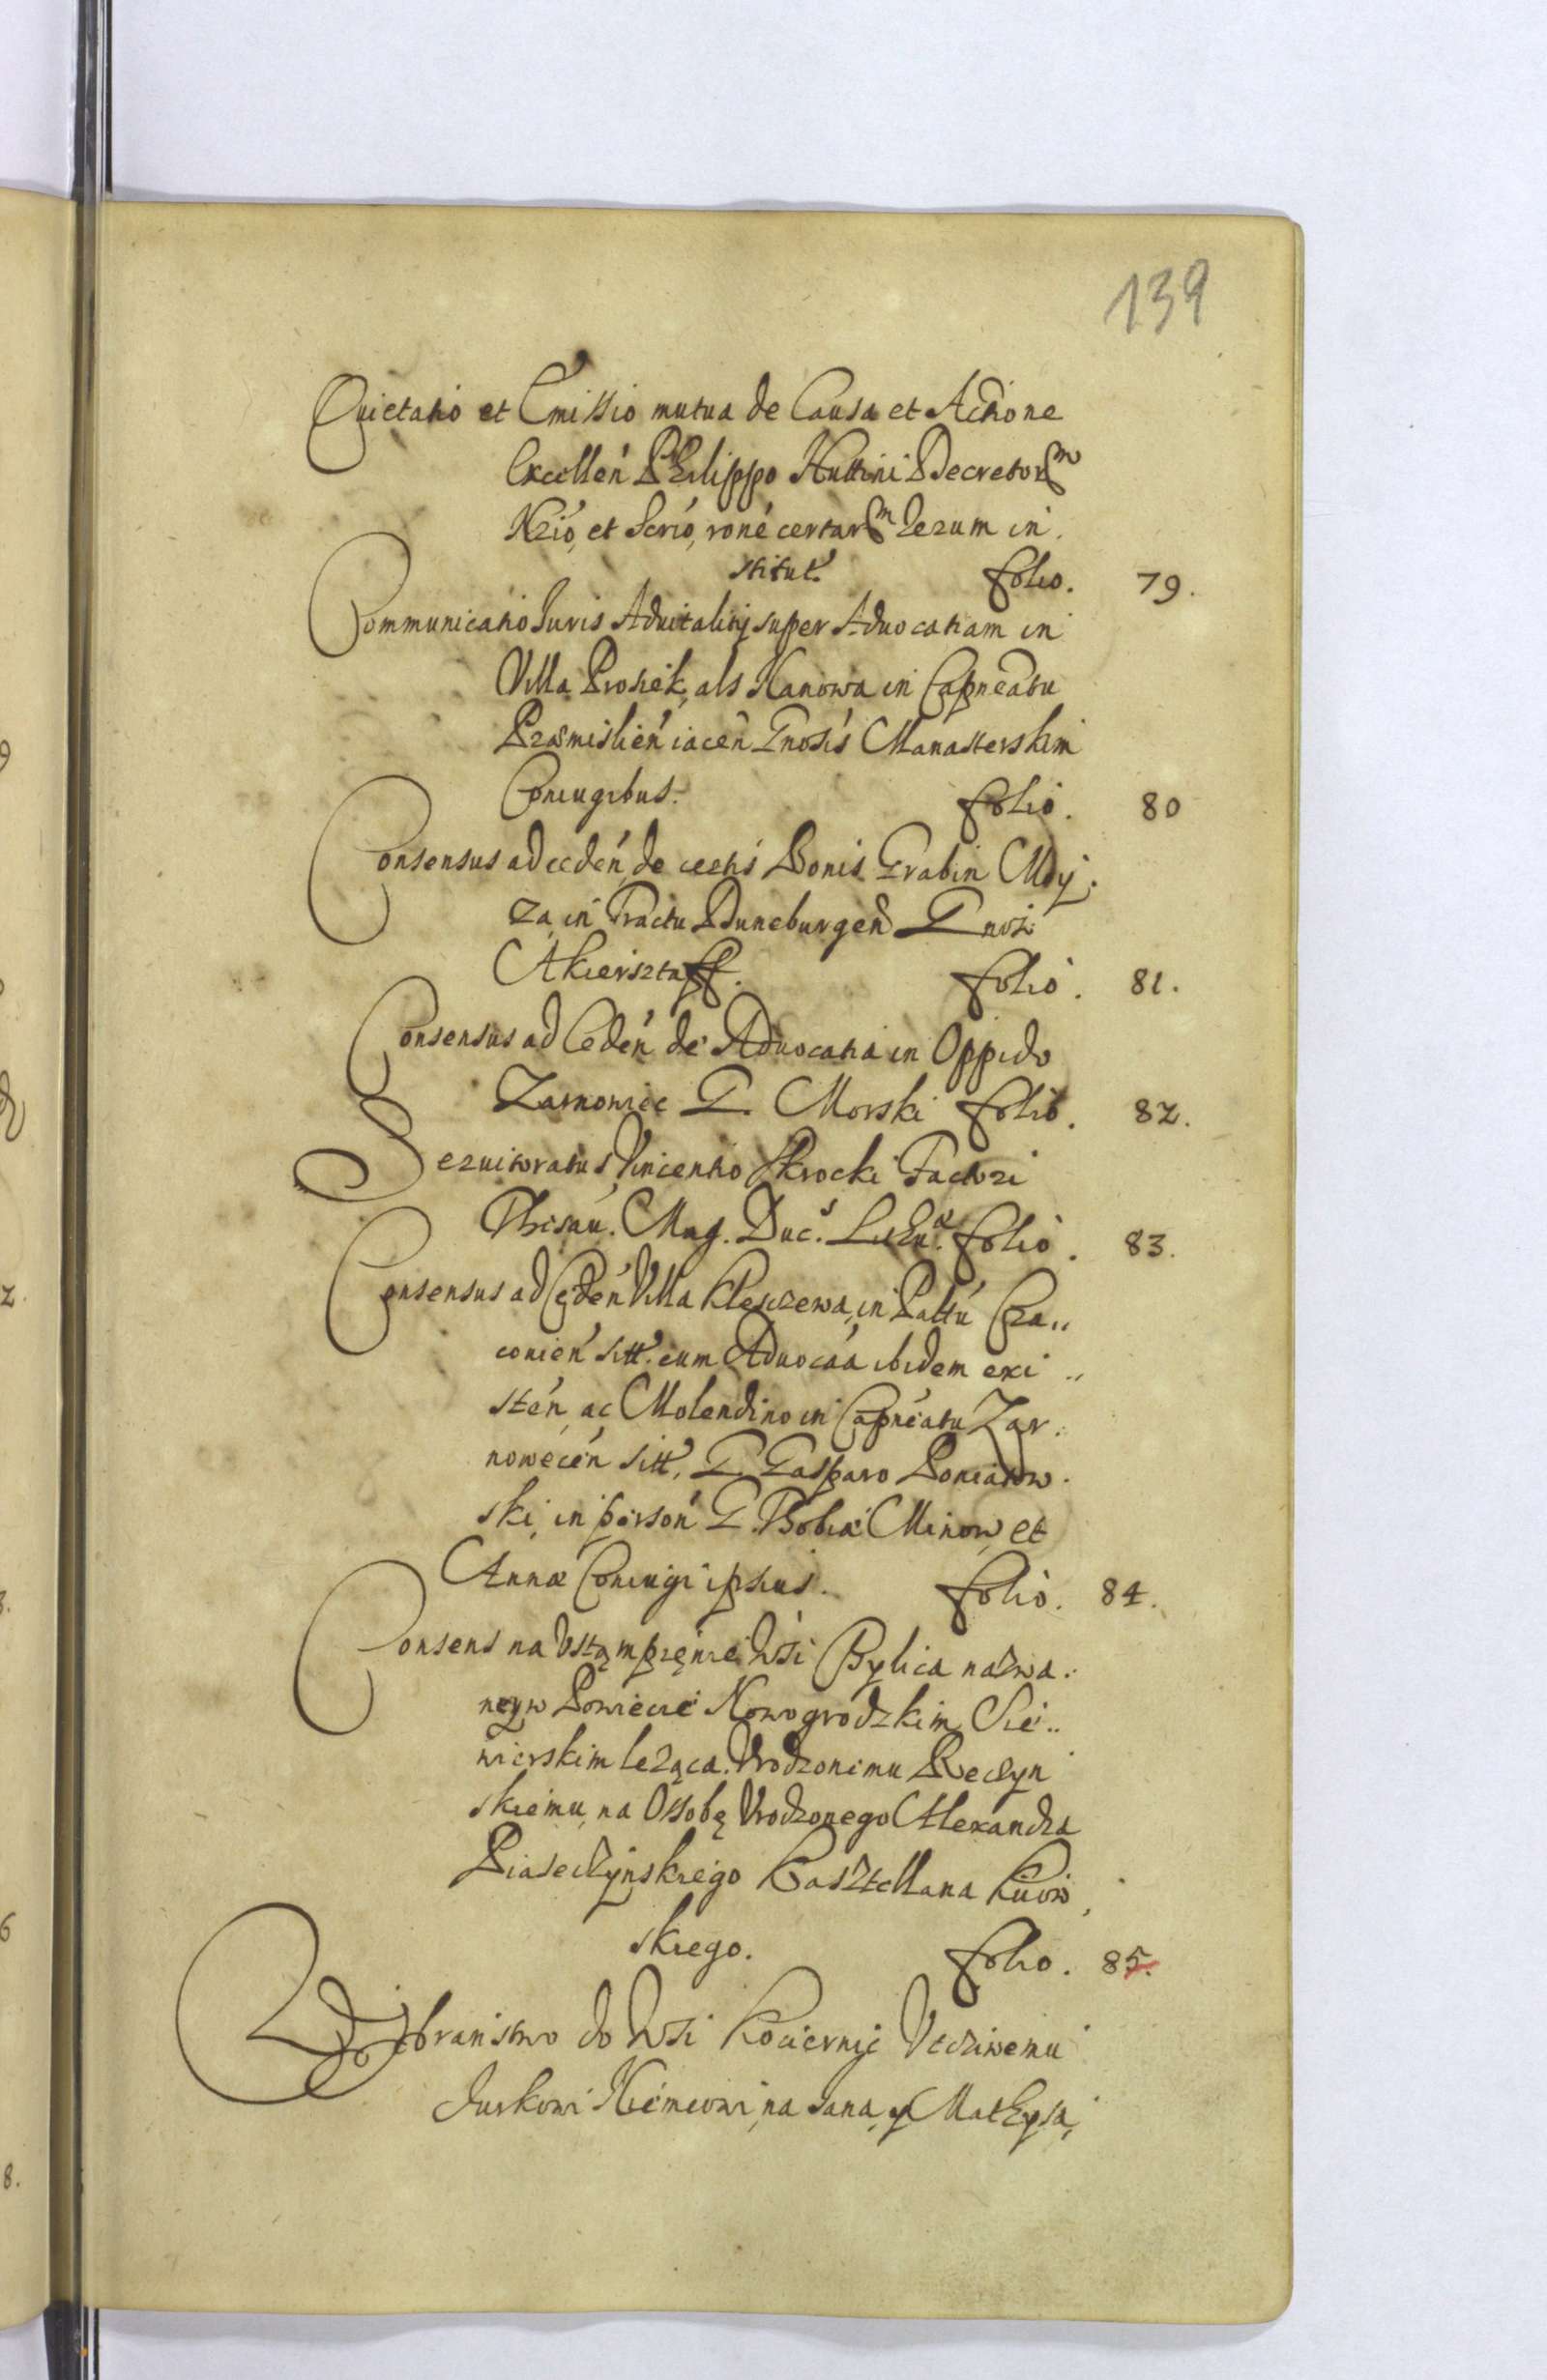 139
Quietatio et Emissio mutua de Causa et Actione
Excellen Philippo Huttini Decretorm
Nrio, et Scrio, rone certarm Rerum in
stitut. folio. 79.
Communicatio Juris Aduitalitij super Aduocatiam in
Villa Prosiek, als Kanowa in Capneatu
Præmislien iacen Gnosis Manasterskim
Coniugibus. folio. 80
Consensus ad ceden de certis Bonis Grabin Moy:
za, in Tractu Duneburgen Gnosi
Akiersztaff. folio. 81.
Consensus ad Ceden de Aduocatia in Oppido
Zarnowiec G. Morski folio. 82.
Seruitoratus Vincentio Skrocki Factori
Thesau. Mag. Duc.s Lithu.æ folio. 83.
Consensus ad Ceden Villa Kleszczewa, in Pallu Cra,,
conien sitt. cum Aduocaa ibidem exi,,
sten, ac Molendino in Capneatu Zar:
nowecen sitt, G. Gasparo Poniatow.
ski, in person G. Tobiæ Minow, et
Annæ Coniugi ipsius. folio. 84.
Consens na Vstąmpięnie Wsi Bylica nazwa:
ney w Powiecie Nowogrodzkim Sie..
wierskim leżąca. Vrodzonemu Reczyn
skiemu, na Ossobę Vrodzonego Alexandra
Piaseczynskiego Kasztellana Kiiow,
skiego. folio. 85.
Wybranistwo do Wsi Kociernie Vczciwemu
Jurkowi Niemcowi, na Jana, y Mathysa,